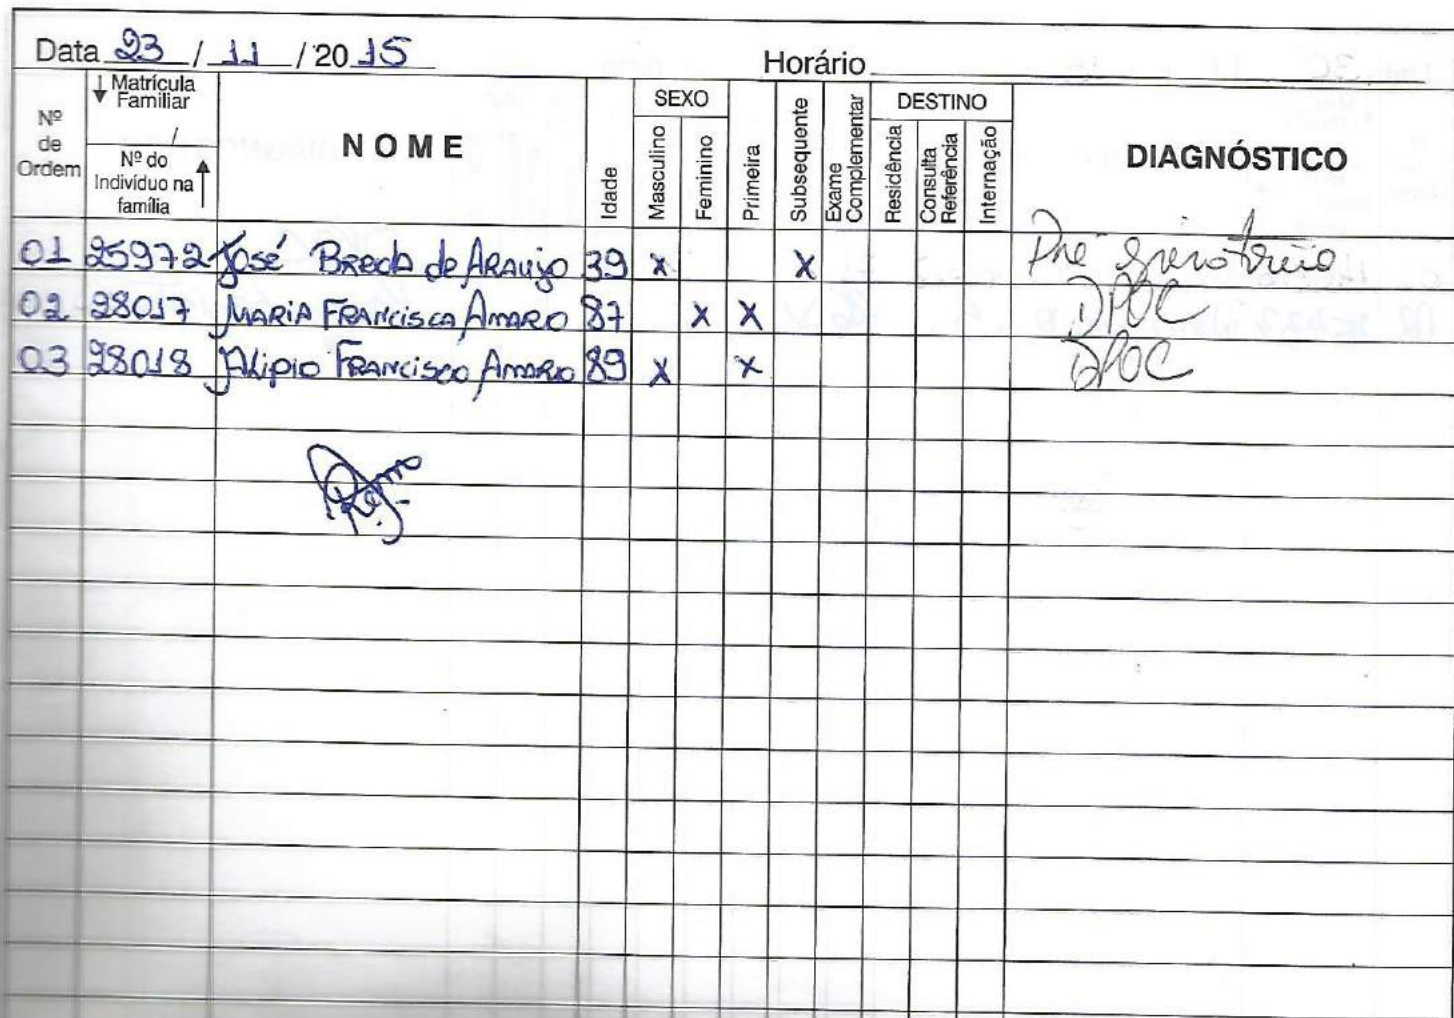 Data 23 / 11 / 2015 Horário
Nº de Ordem
Matrícula Familiar
/
Nº do Indivíduo na família
NOME
Idade
SEXO
Masculino
Feminino
Primeira
Subsequente
Exame Complementar
DESTINO
Residência
Consulta Referência
Internação
DIAGNÓSTICO
01 25972 José Breda de Araujo 39 x x Pré
02 28017 Maria Francisca Amaro 87 x x DPOC
03 28018 Alipio Francisco Amaro 89 x x DPOC